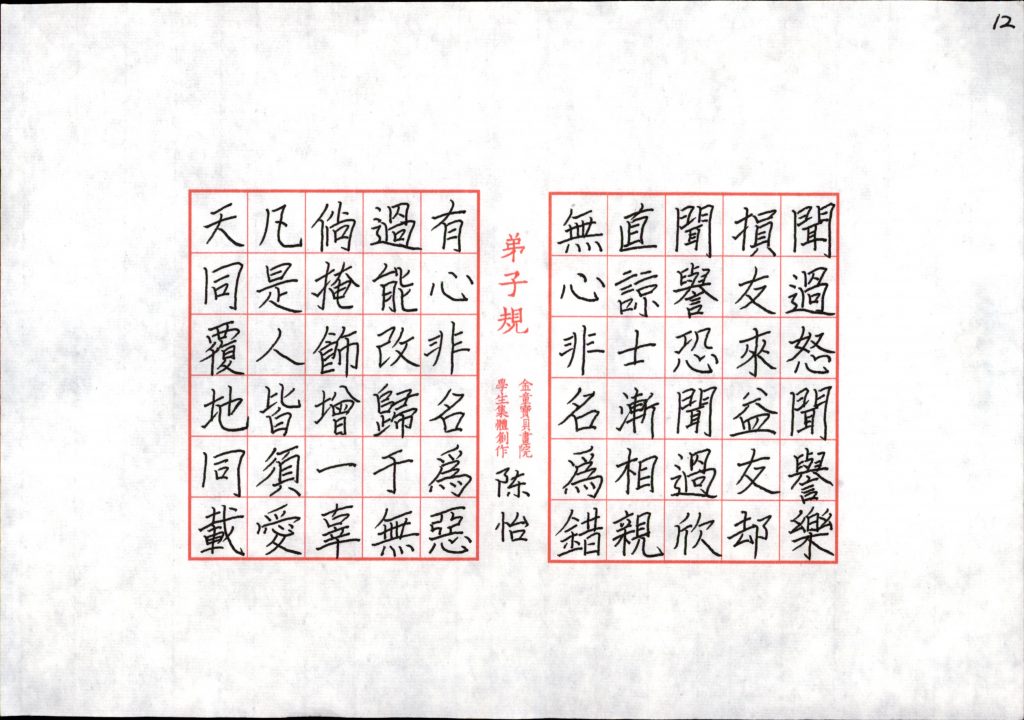 12
聞過怒聞譽樂
損友來益友却
聞譽恐聞過欣
直諒士漸相親
無心非名爲錯
弟子規
金童寶貝畫院
學生集體創作
陈怡
有心非名爲惡
過能改歸于無
倘掩飾增一辜
凡是人皆須愛
天同覆地同載